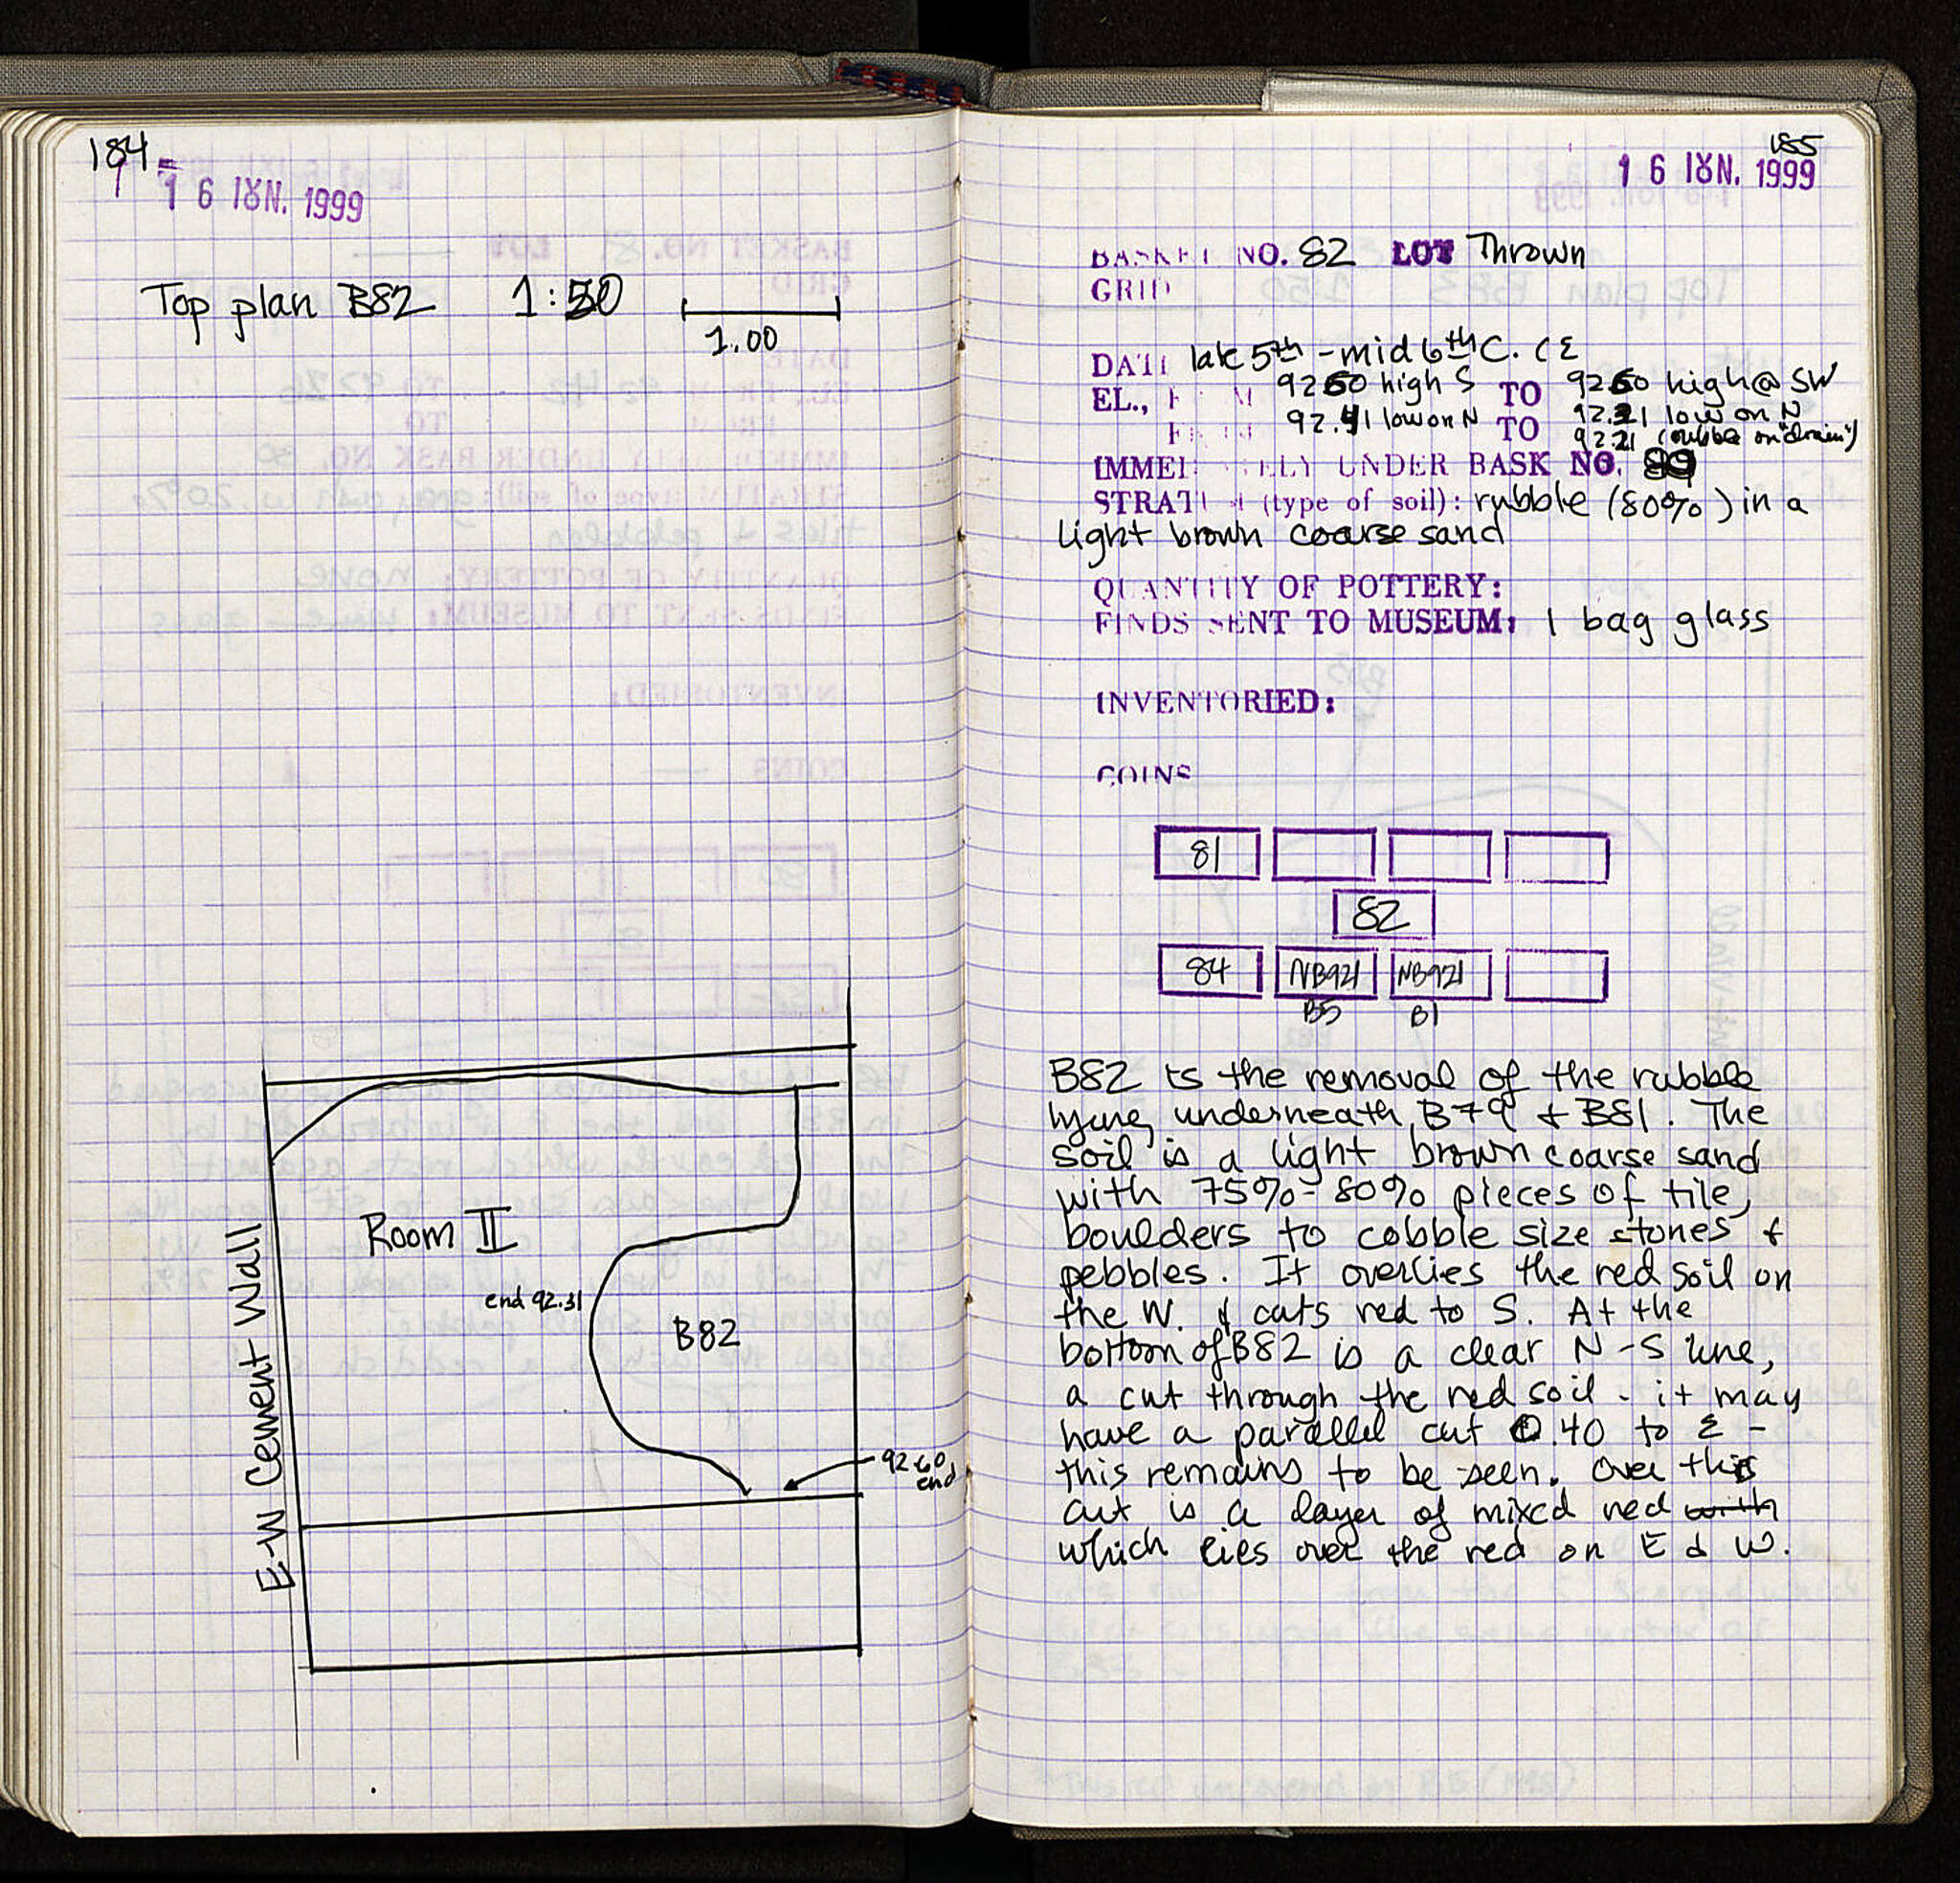 184
16 ΙȢΝ. 1999
Top plan B82 1:50
1.00
E-W Cement Wall
Room II
end 92.31
B82
92.60
end
185
16 ΙȢΝ. 1999
BASKET NO. 82 LOT Thrown
GRID
DATE late 5th - mid 6th C. CE
EL., FROM 92.60 high S TO 92.60 high @ SW
FROM 92.41 low on N TO 92.21 low on N
92.21 (rubble on "drain")
IMMEDIATELY UNDER BASK NO.
STRATUM (type of soil): rubble (80%) in a
light brown coarse sand
QUANTITY OF POTTERY:
FINDS SENT TO MUSEUM: 1 bag glass
INVENTORIED:
COINS
81
82
84 NB921 NB921
B5 B1
B82 is the removal of the rubble
lying underneath B79 & B81. The
soil is a light brown coarse sand
with 75%-80% pieces of tile,
boulders to cobble size stones &
pebbles. It overlies the red soil on
the W. & cuts red to S. At the
bottom of B82 is a clear N-S line,
a cut through the red soil - it may
have a parallel cut 0.40 to E -
this remains to be seen. Over this
cut is a layer of mixed red with
which lies over the red on E & W.